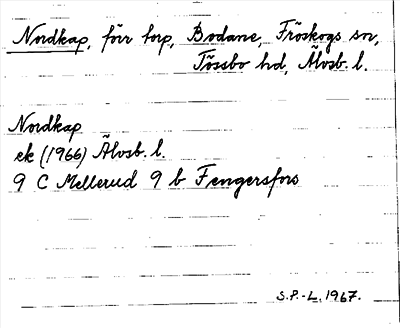 Nordkap, förr torp, Bodane, Fröskogs sn,
Tössbo hd, Älvsb. l.
Nordkap
ek (1966) Älvsb. l.
9 C Mellerud 9 b Fengersfors
S.P.-L. 1967.